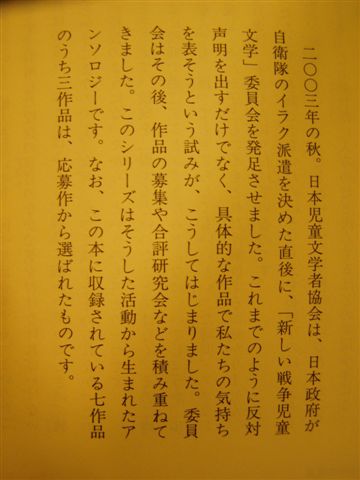 二〇〇三年の秋。日本児童文学者協会は、日本政府が
自衛隊のイラク派遣を決めた直後に、「新しい戦争児童
文学」委員会を発足させました。これまでのように反対
声明を出すだけでなく、具体的な作品で私たちの気持ち
を表そうという試みが、こうしてはじまりました。委員
会はその後、作品の募集や合評研究会などを積み重ねて
きました。このシリーズはそうした活動から生まれたア
ンソロジーです。なお、この本に収録されている七作品
のうち三作品は、応募作から選ばれたものです。